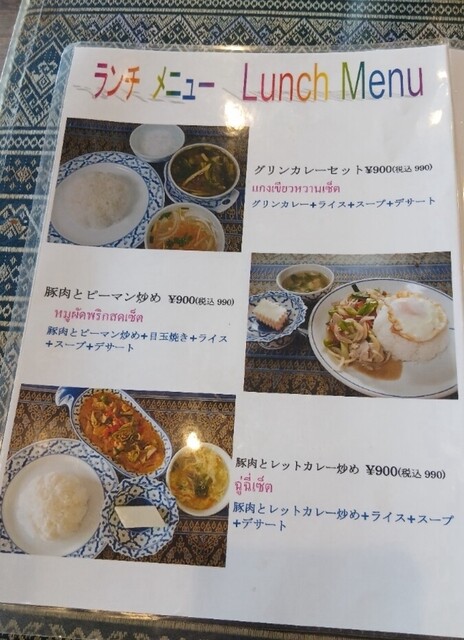 ランチ メニュー Lunch Menu
グリンカレーセット ¥900(税込 990)
แกงเขียวหวานเซ็ต
グリンカレー+ライス+スープ+デザート
豚肉とピーマン炒め ¥900(税込 990)
หมูผัดพริกสดเซ็ต
豚肉とピーマン炒め+目玉焼き+ライス
+スープ+デザート
豚肉とレットカレー炒め ¥900(税込 990)
ฉู่ฉี่เซ็ต
豚肉とレットカレー炒め+ライス+スープ
+デザート